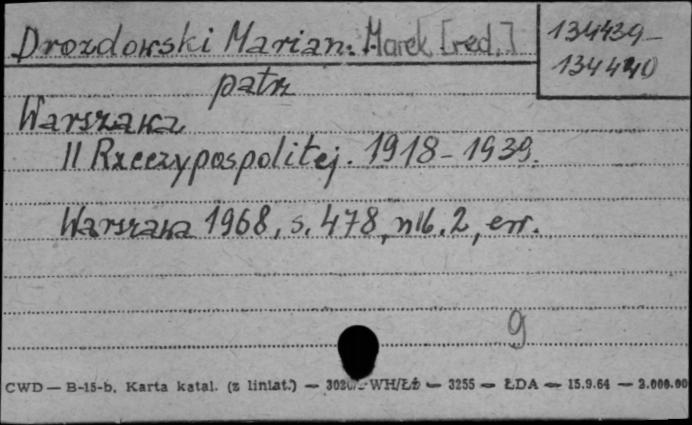 Drozdowski Marian. Marek [red.]
134439-
134440
patrz
Warszawa
II Rzeczypospolitej. 1918-1939.
Warszawa 1968, s. 478, nlb. 2, err.
9
CWD — B-15-b. Karta katal. (z liniat.) — WH/Łż — 3255 — ŁDA — 15.9.64 — 2.000.00